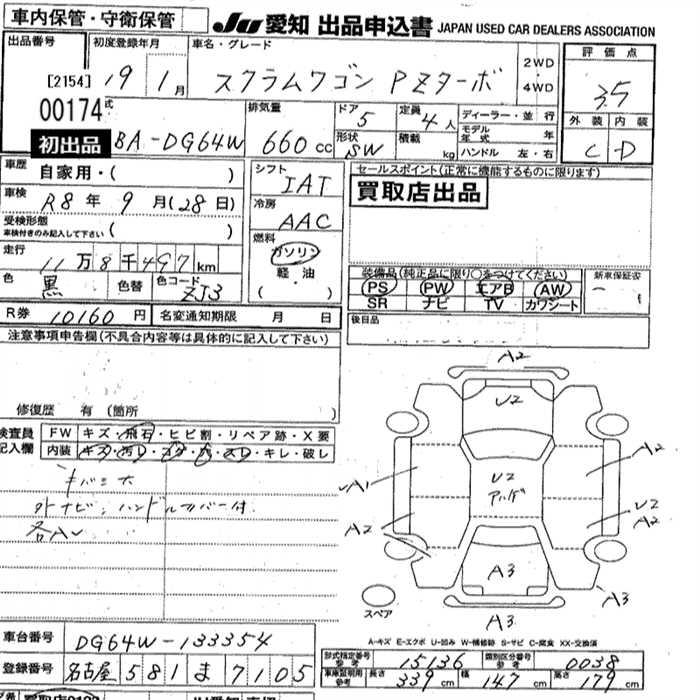 車内保管・守衛保管
JU 愛知 出品申込書 JAPAN USED CAR DEALERS ASSOCIATION
出品番号 初度登録年月 車名・グレード 2WD・4WD 評価点
[2154] 19 1月 スクラムワゴン PZターボ 3.5
00174 式 排気量 ドア 5 定員 4人 ディーラー・並行 外装 内装
初出品 BA-DG64W 660cc 形状 SW 積載 kg モデル年式 年 C D
ハンドル 左・右
車歴 自家用・( ) シフト IAT セールスポイント(正常に機能するものに限ります)
買取店出品
車検 R8年 9月(28日) 冷房 AAC
受検形態 車検付きのみ記入して下さい ( )
走行 11万8千497km 燃料 ガソリン・軽油 ( )
装備品(純正品に限り○をつけてください) 新車保証書
色 黒 色替 色コード ZJ3 PS PW エアB AW
SR ナビ TV カワシート
R券 10160円 名変通知期限 月 日 後日品
注意事項申告欄(不具合内容等は具体的に記入して下さい)
修復歴 有 (箇所 )
検査員記入欄 FW キズ・飛石・ヒビ割・リペア跡・X要
内装 キズ・汚レ・コゲ・穴・スレ・キレ・破レ
キバミ大
外ナビ、ハンドルカバー付
各A
A2
U2
A1 U2 A2
A2 U2 A2
A3
A3
A3
スペア
A-キズ E-エクボ U-凹み W-補修跡 S-サビ C-腐食 XX-交換済
車台番号 DG64W-133354
登録番号 名古屋 581 ま 7105
型式指定番号 参考 15136 類別区分番号 参考 0038
車庫証明用 参考 長さ 339cm 幅 147cm 高さ 179cm